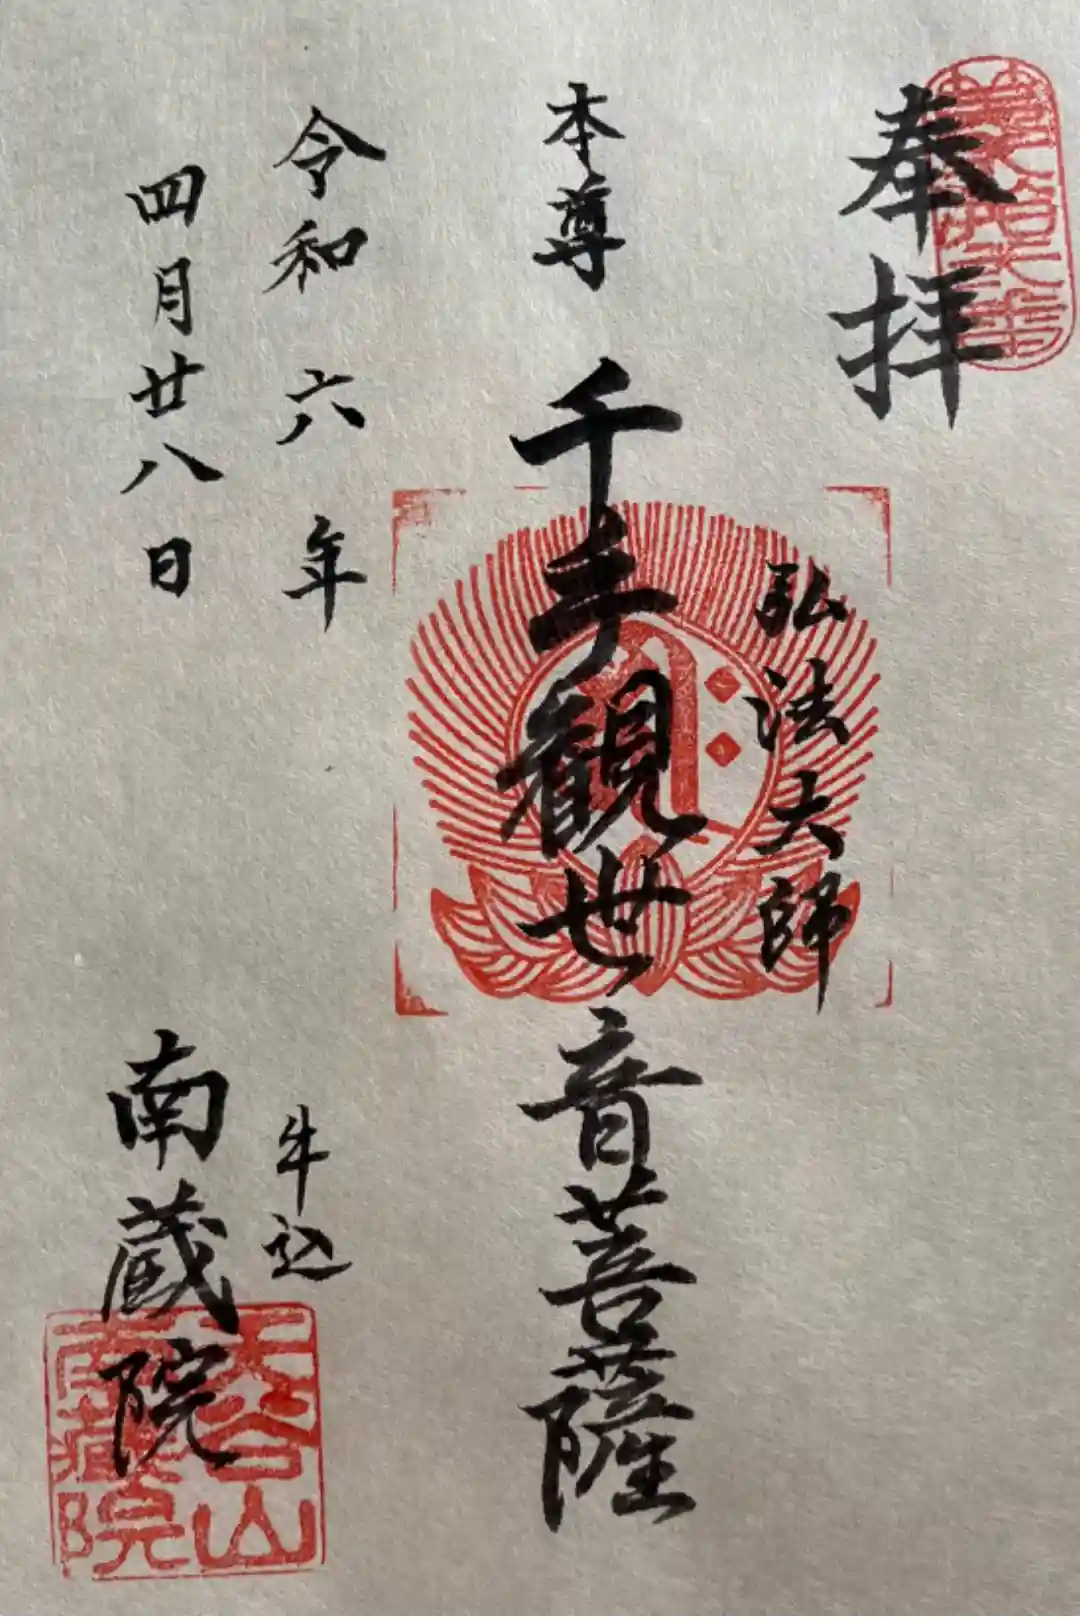 奉拝
弘法大師
本尊 千手観世音菩薩
令和六年
四月廿八日
牛込
南蔵院
天谷山
南蔵院